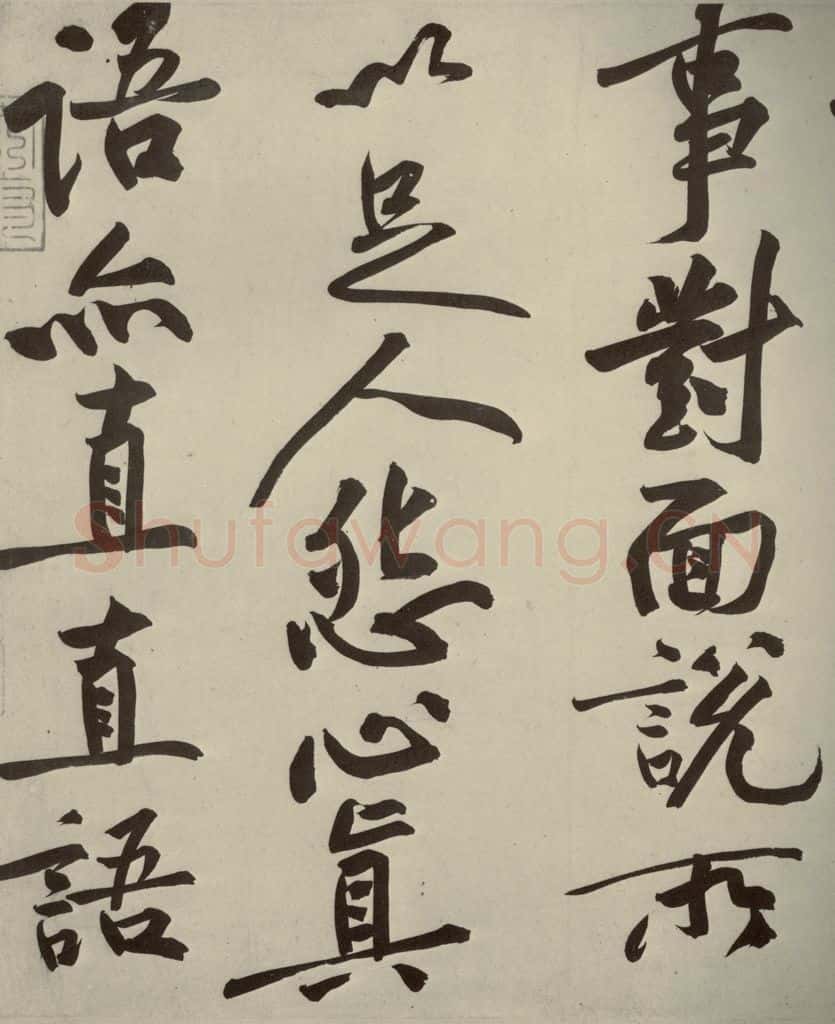 事對面說所
以足人怨心真
語亦直直語
Shufawang.CN